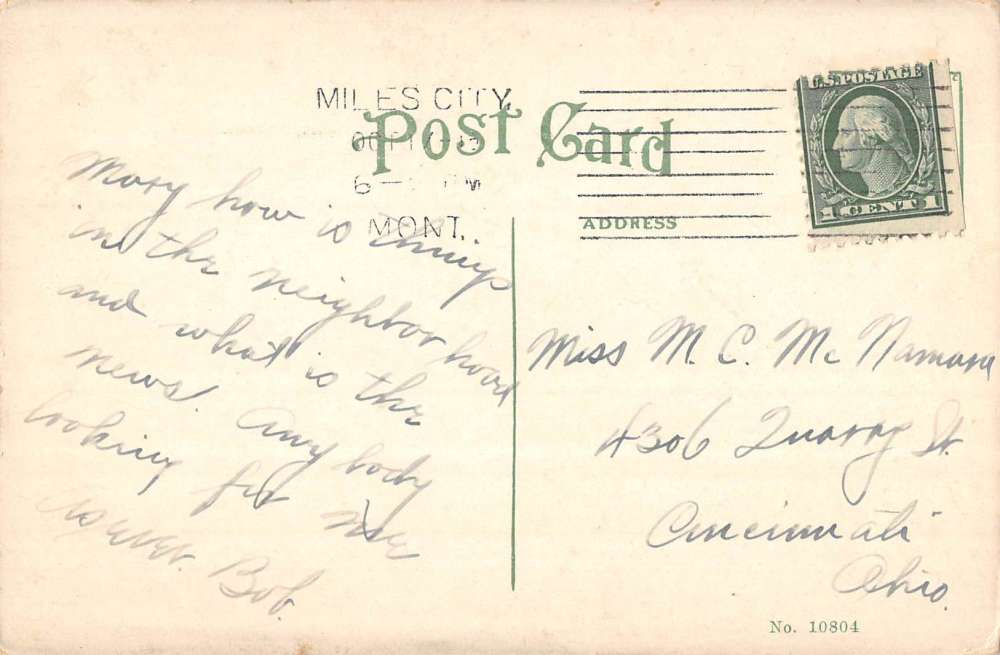 MILES CITY,
OCT
6 - PM
MONT.
Post Card
U.S. POSTAGE
1 CENT 1
ADDRESS
Mary how is things
in the neighborhood
and what is the
news. Any body
looking for me
Bob.
Miss M. C. Mc Namara
4306 St.
Cincinnati
Ohio.
No. 10804